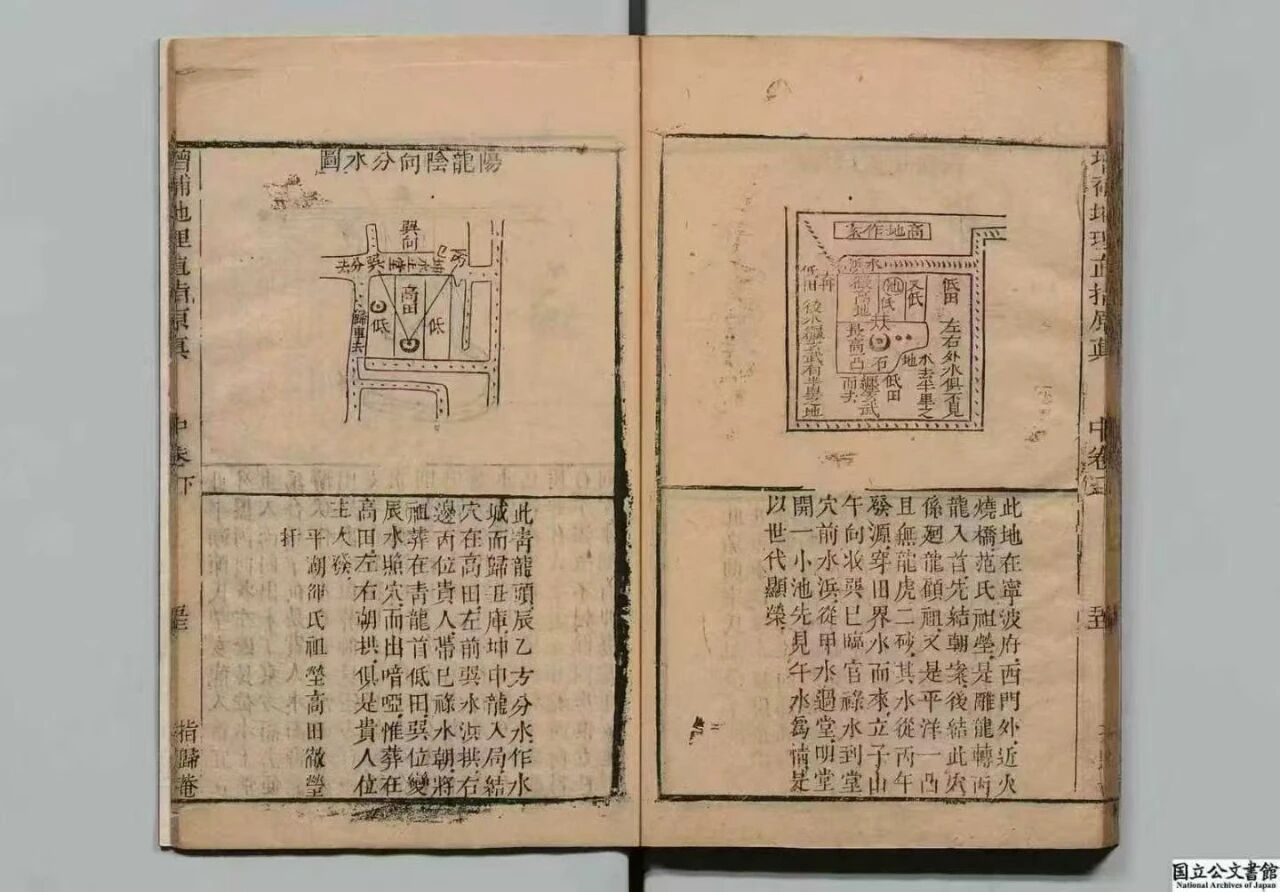 增補地理直指原真
中卷
高地作案
水浜
低田
左右外水俱不見
又低
池低
微高地
最高凸
石
地
水去半里之
低田
纏玄武
而去
低田
此地在寧波府西門外近火
燒橋范氏祖塋是雕龍轉丙
龍入首先結朝案後結此穴
係廻龍顧祖又是平洋一凸
且無龍虎二砂其水從丙午
發源穿旧界水而來立子山
午向收巽巳臨官祿水到堂
穴前水浜從甲水過堂明堂
開一小池先見午水爲情是
以世代顯榮
陽龍陰向分水圖
巽向
高田
低
低
此青龍頭辰乙方分水作水
城而歸丑庫坤申龍入局結
穴在高田左前巽水浜拱右
邊丙位貴人帶巳祿水朝將
祖葬在青龍首低田巽位變
辰水照穴而出喑啞惟葬在
高田左右朝拱俱是貴人位
主大發
平湖氏祖塋高田徽瑩
扦
增補地理直指原真
中卷下
指歸菴
国立公文書館
National Archives of Japan